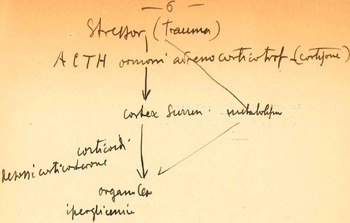 — 6 —
Stressor (Trauma)
ACTH ormoni adrenocorticotrof (cortisone)
cortex surren. metabolism
corticoidi
corticosterone
organi
iperglicemie